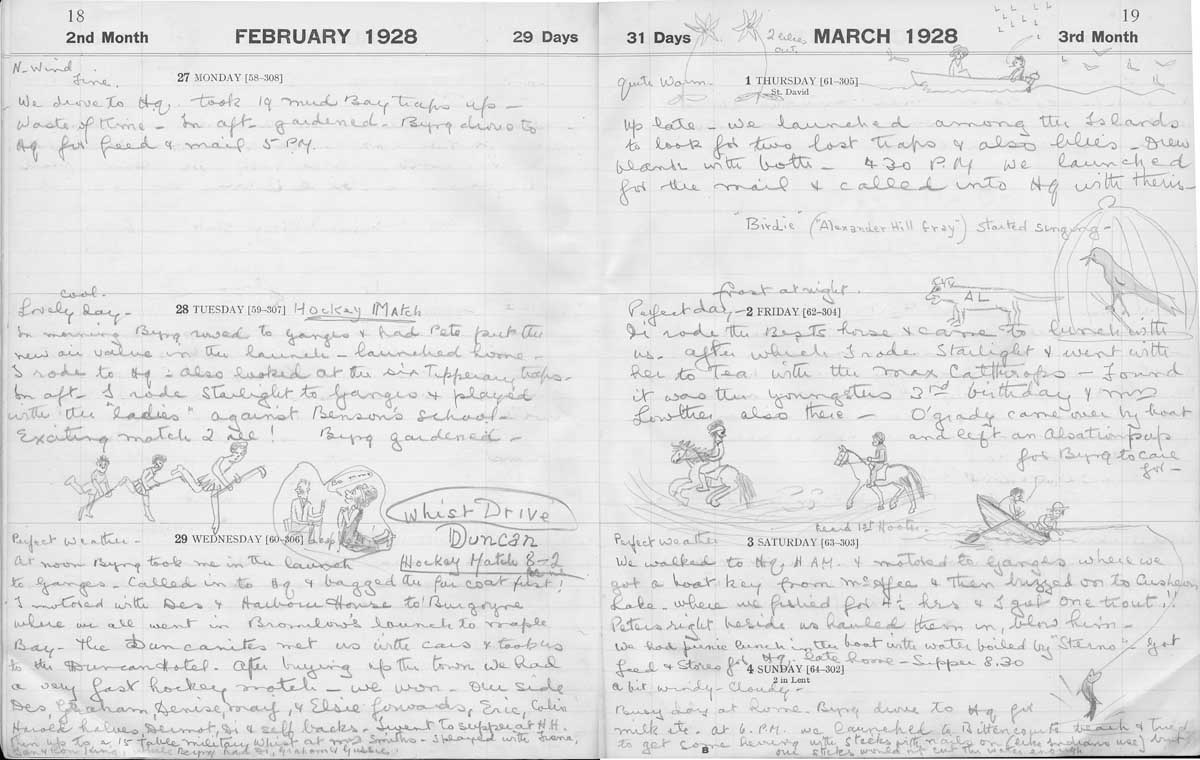 18
2nd Month FEBRUARY 1928 29 Days
N. Wind
Fine.
27 MONDAY [58-308]
We drove to Hq. took 19 mud Bay traps up -
Waste of time - In aft. gardened. Byrq drove to
Hq for feed & mail 5 P.M.
cool.
Lovely day -
28 TUESDAY [59-307] Hockey Match
In morning Byrq rowed to Ganges & had Pete put the
new air valve in the launch - launched home -
I rode to Hq - also looked at the six Tipperary traps.
In aft. I rode Starlight to Ganges & played
with the "ladies" against Benson's school -
Exciting match 2 all! Byrq gardened -
Whist Drive
Duncan
Hockey Match 8-2
29 WEDNESDAY [60-306]
Perfect weather -
At noon Byrq took me in the launch
to Ganges. Called in to Hq & bagged the fur coat first!
I motored with Des & Harbour House to Burgoyne
where we all went in Bromlow's launch to Maple
Bay - The Duncanites met us with cars & took us
to the Duncan Hotel. After buying up the town we had
a very fast hockey match - we won - Our side
Des, Graham, Denise, may, & Elsie forwards, Eric, Colin
Harold halves, Dermot, Di & self backs. I went to supper at H.H.
then up to a 15 table military Whist at the Smiths - I played with Irene,
19
31 Days MARCH 1928 3rd Month
2 lilies
out.
Quite Warm.
1 THURSDAY [61-305]
St. David
Up late - We launched among the Islands
to look for two lost traps & also lilies - Drew
blank with both - 4.30 P.M we launched
for the mail & called into Hq with theirs -
"Birdie" ("Alexander Hill Gray") started singing -
frost at night.
AL
Perfect day -
2 FRIDAY [62-304]
Di rode the Bests horse & came to lunch with
us. After which I rode Starlight & went with
her to Tea with the Max Catthrops - Found
it was their youngsters 3rd birthday & Mrs
Lowther also there - O'Grady came over by boat
and left an Alsation pup
for Byrq to care
for -
heard 1st Hooter.
Perfect weather
3 SATURDAY [63-303]
We walked to Hq 11 AM. & motored to Ganges where we
got a boat key from McAfee & then buzzed on to Cusheon
Lake. where we fished for 4½ hrs & I got one trout!!
Peters right beside us hauled them in, blow him -
We had picnic lunch in the boat with water boiled by "Sterno" - Got
feed & Stores for Hq. late home - Supper 8.30
4 SUNDAY [64-302]
2 in Lent
a bit windy - Cloudy -
Busy day at home. Byrq drove to Hq for
milk etc. at 6. P.M. we launched to Bittencourts beach & tried
to get some herring with sticks with nails on (like Indians use) but
our sticks would not cut the water enough
B